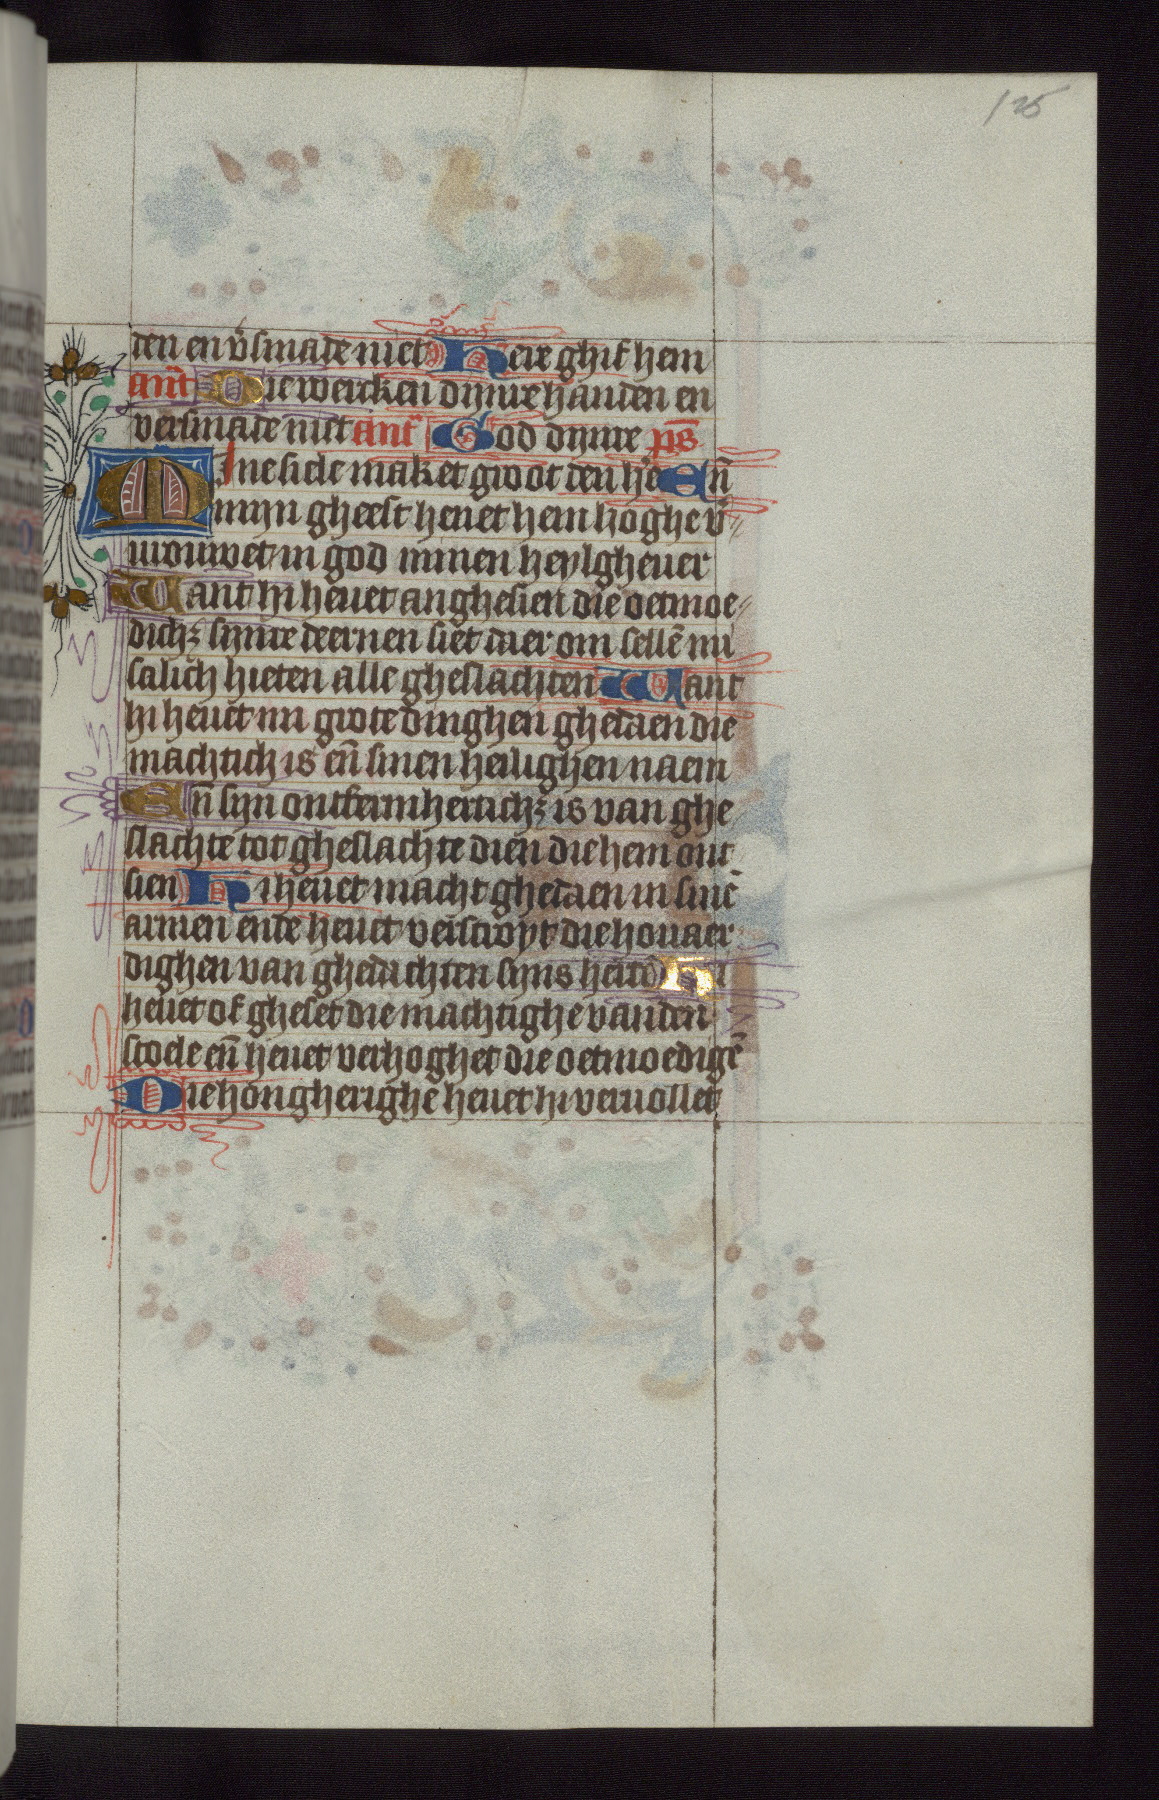 125
den en v̄smade niet Here ghif hem
ant̄ Die wercken dijnre handen en
versmade niet ant̄ God dijnre ps̄
MIne siele maket groot den he En̄
mijn gheest heuet hem hoghe v̄
urouwet in god minen heylgheuer
Want hi heuet anghesien die oetmoe
dichꝫ sijnre deernen siet daer om sellē mi
salich hieten alle gheslachten Want
hi heuet mi grote dinghen ghedaen die
machtich is en̄ sinen heilighen naem
En̄ sijn ontfermherticheꝫ is van ghe
slachte tot gheslachte dien die hem ont
sien Hi heuet macht ghedaen in sinē
armen ende heuet verstroyt die houaer
dighen van ghedachten sijns herten Hi
heuet of gheset die machtighe vanden
stoele en̄ heuet verhoghet die oetmoedigē
Die hongherighe heuet hi veruollet